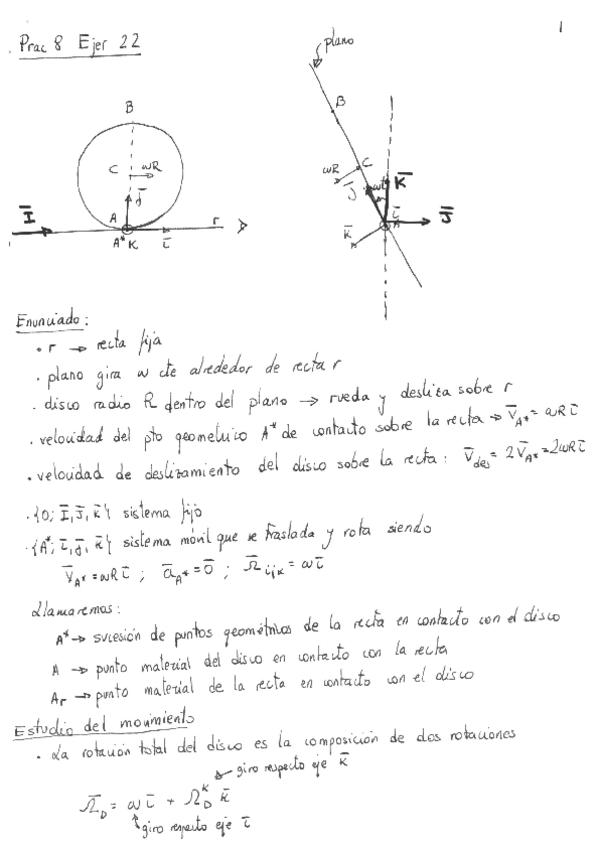 1
Prac 8 Ejer 22
plano
B
B
C ωR
C
ωR
j̄
J̄
ωt
K̄
Ī
A
r
ī
A
J̄
A* K ī
k̄
Enunciado:
· r → recta fija
· plano gira ω cte alrededor de recta r
· disco radio R dentro del plano → rueda y desliza sobre r
· velocidad del pto geometrico A* de contacto sobre la recta → V̄A* = ωR ī
· velocidad de deslizamiento del disco sobre la recta: V̄des = 2V̄A* = 2ωR ī
· {O; Ī, J̄, K̄} sistema fijo
· {A*; ī, j̄, k̄} sistema móvil que se traslada y rota siendo
V̄A* = ωR ī ; āA* = 0̄ ; Ω̄ijk = ω ī
Llamaremos:
A* → sucesión de puntos geométricos de la recta en contacto con el disco
A → punto material del disco en contacto con la recta
Ar → punto material de la recta en contacto con el disco
Estudio del movimiento
· La rotación total del disco es la composición de dos rotaciones
giro respecto eje k̄
Ω̄D = ω ī + ΩD^K k̄
giro respecto eje ī